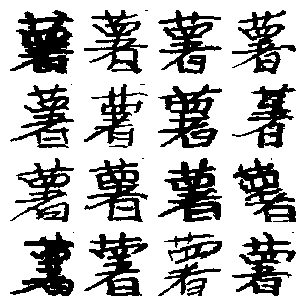 薯薯薯薯
薯薯薯薯
薯薯薯薯
薯薯薯薯